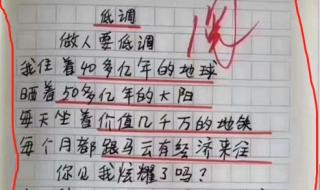 低调
做人要低调
我住着40多亿年的地球
晒着50多亿年的太阳
每天坐着价值几千万的地铁
每个月都跟马云有经济来往
你见我炫耀了吗？